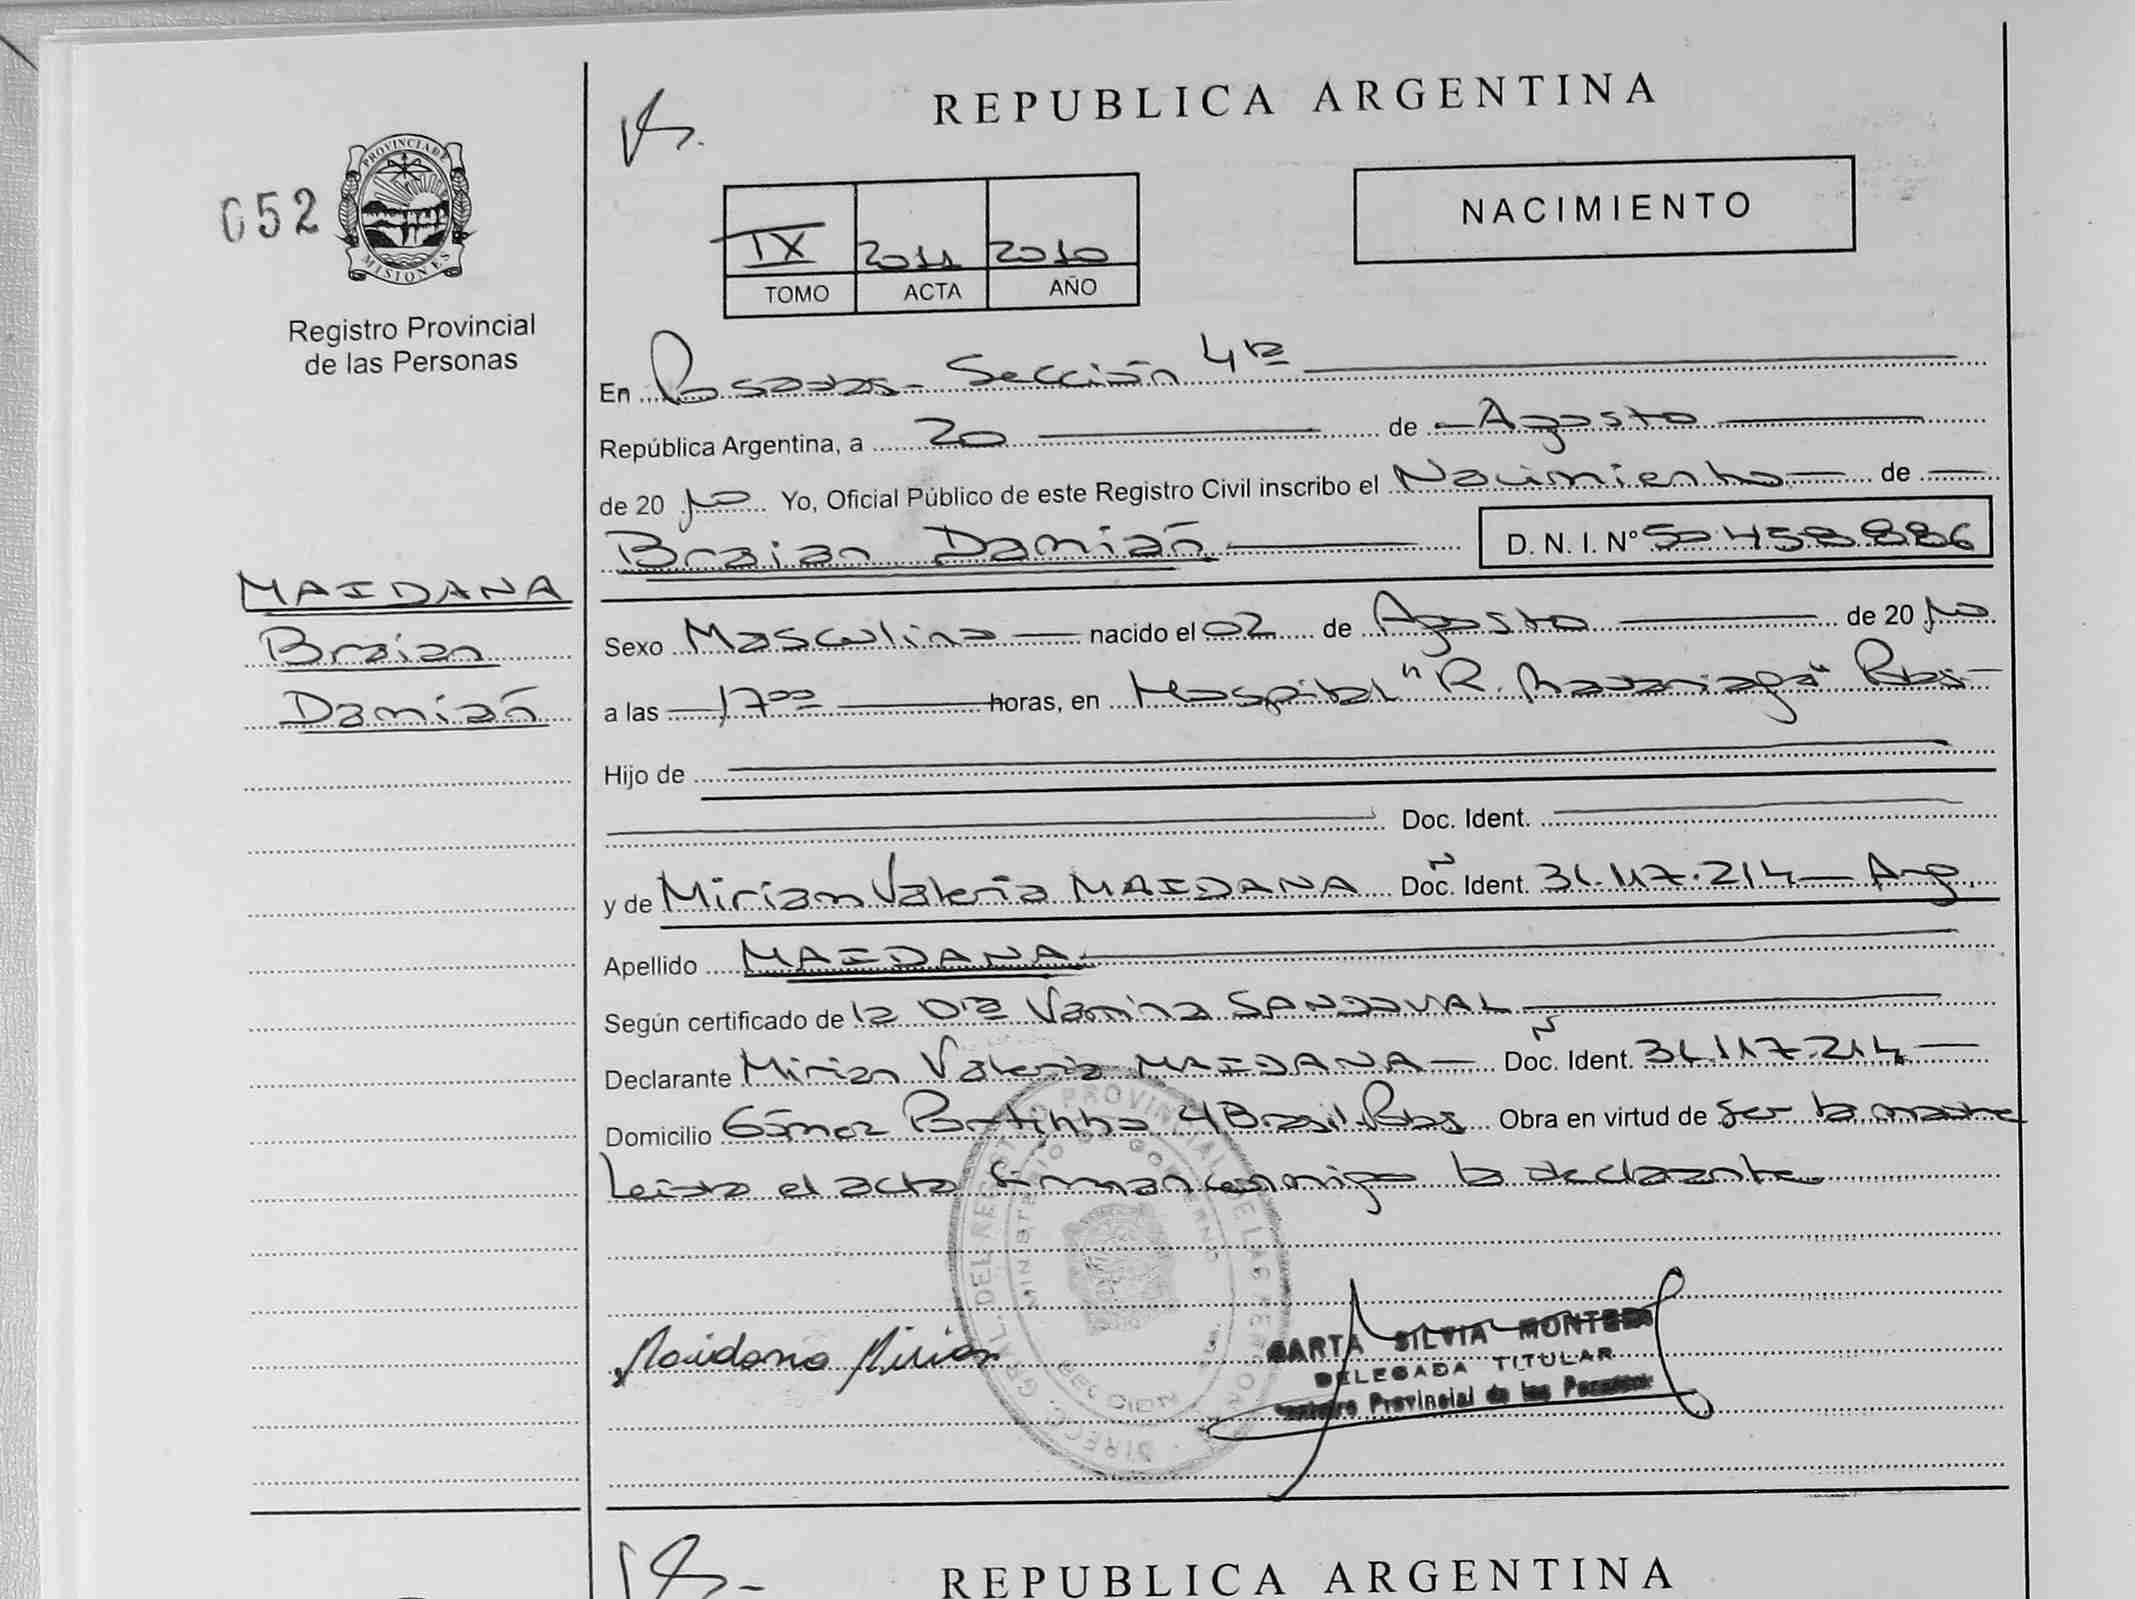 REPUBLICA ARGENTINA
052
PROVINCIA DE
MISIONES
Registro Provincial
de las Personas
IX 2011 2010
TOMO ACTA AÑO
NACIMIENTO
En Posadas - Sección 4ta
República Argentina, a 20 de Agosto
de 2010 Yo, Oficial Público de este Registro Civil inscribo el Nacimiento de
Braian Damián D. N. I. Nº 50 458 886
MAIDANA
Braian
Damián
Sexo Masculino nacido el 02 de Agosto de 2010
a las 17 00 horas, en Hospital "R. Madariaga" Pdas
Hijo de
Doc. Ident.
y de Mirian Valeria MAIDANA Doc. Ident. 31.117.214 - Arg.
Apellido MAIDANA
Según certificado de la Dra Vanina SANDOVAL
Declarante Mirian Valeria MAIDANA Doc. Ident. 31.117.214
Domicilio Gómez Portinho y Brasil. Pdas Obra en virtud de ser la madre
Leída el acta firman conmigo la declarante
DIRECC. GRAL. DEL REGISTRO PROVINCIAL DE LAS PERSONAS
MINISTERIO DE GOBIERNO
SECCION
Maidana Mirian
SILVIA
DELEGADA TITULAR
Provincial de las Personas
REPUBLICA ARGENTINA